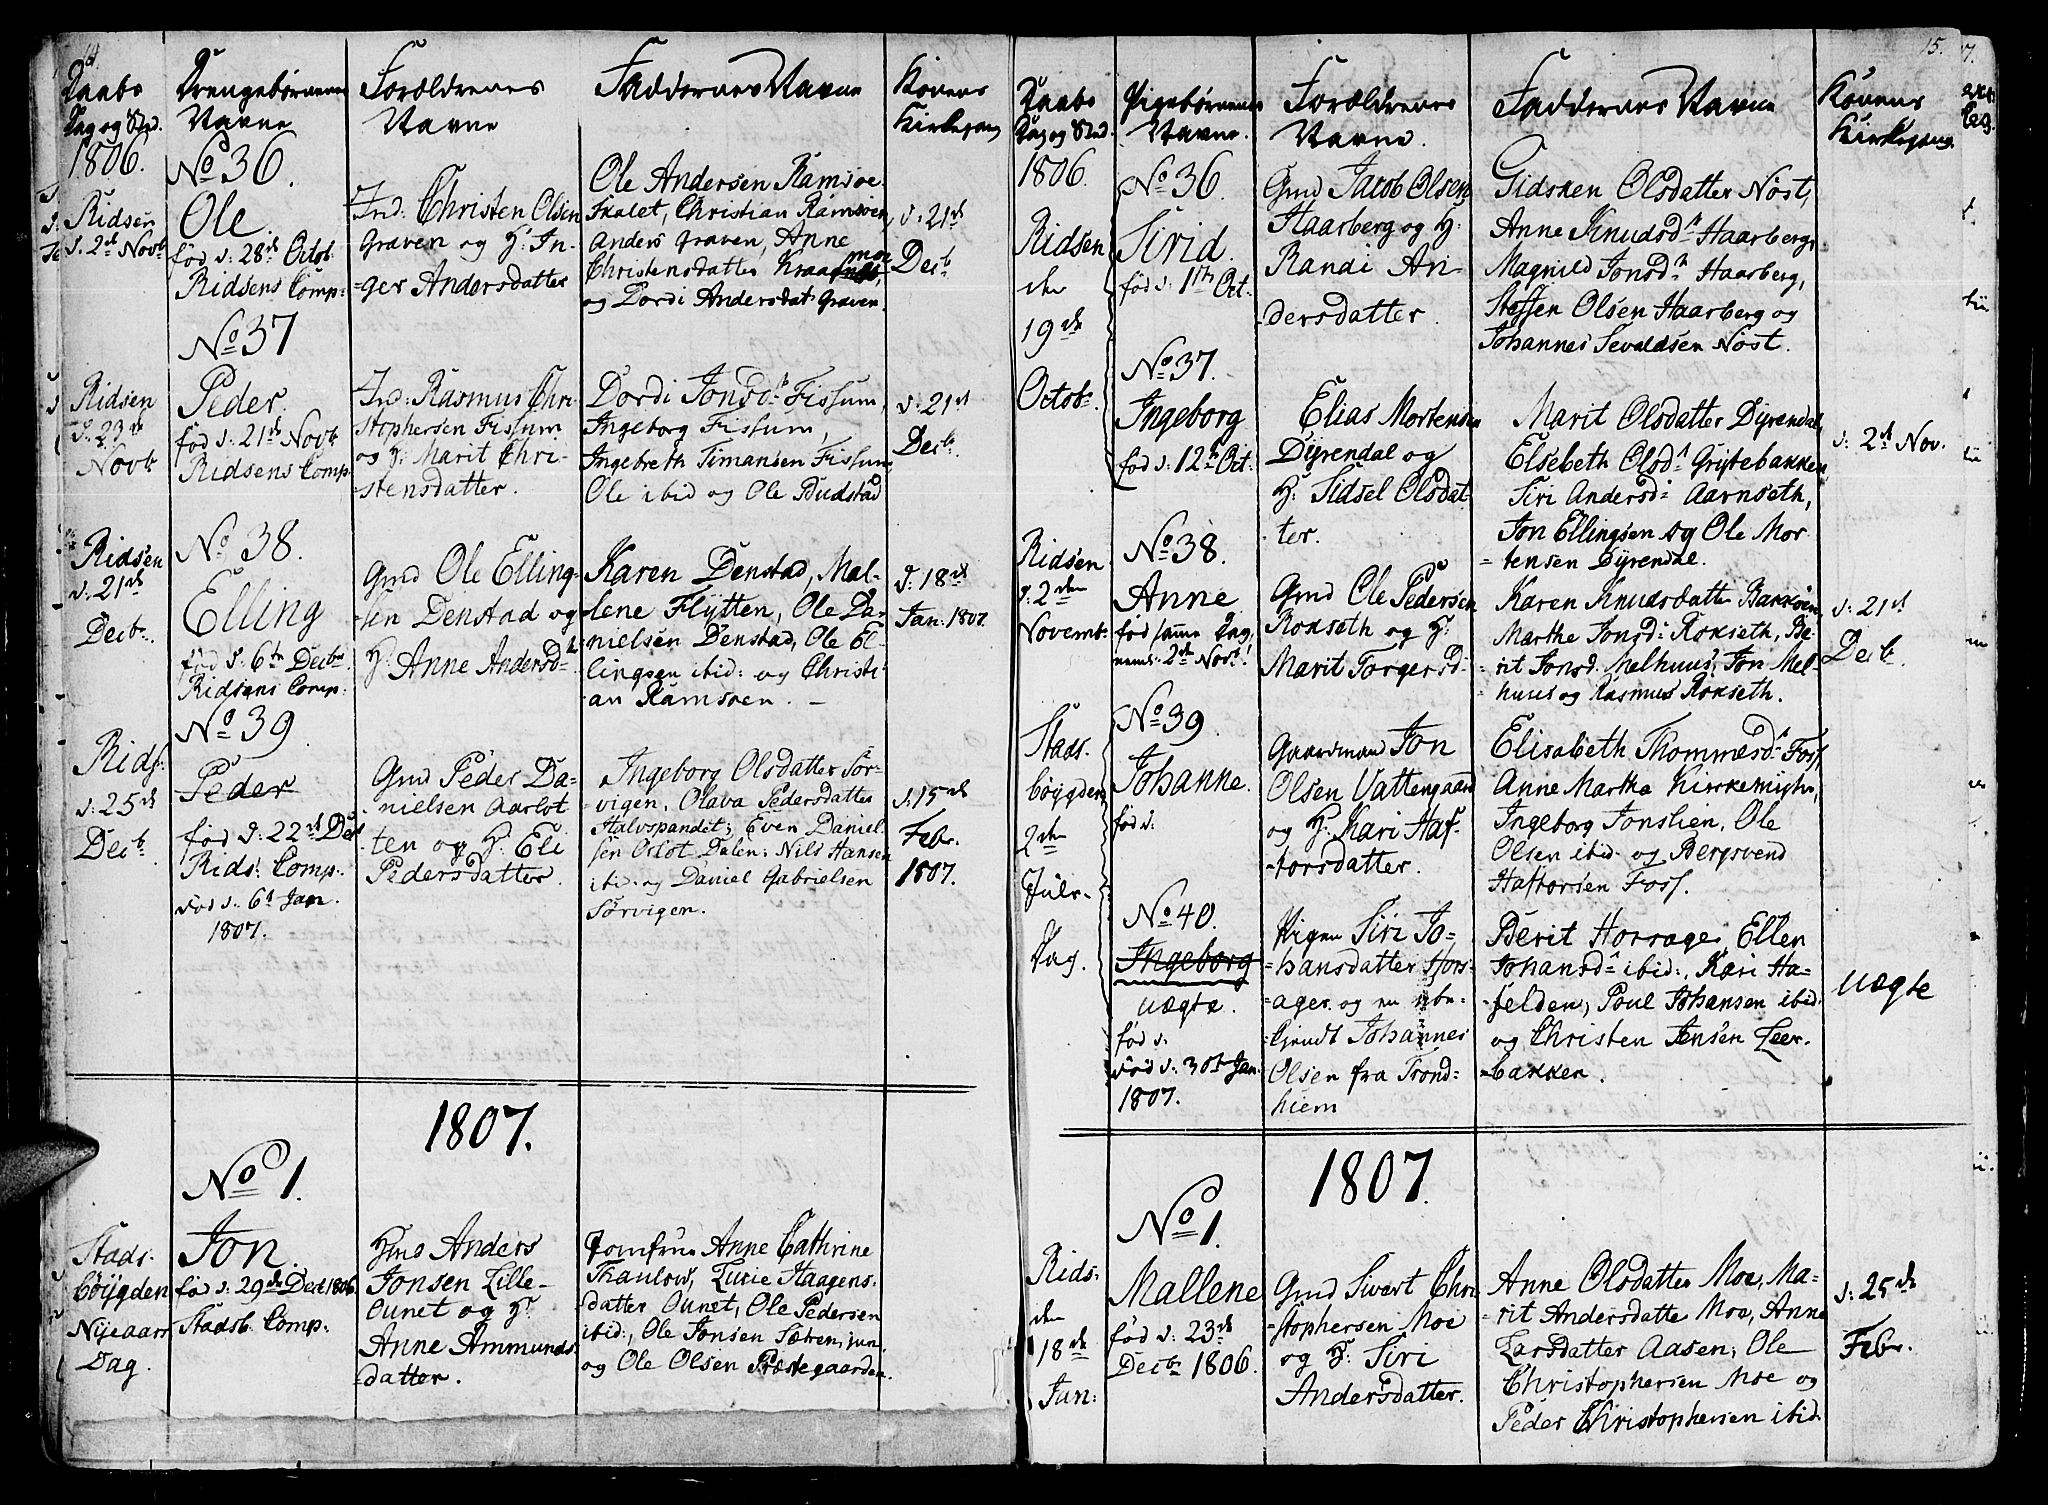 14.
Daabs
Dag og Sted.
Drengebørnenes
Navne
Forældrenes
Navne
Faddernes Navne
Konens
Kirkegang
1806.
Ridsen
d. 2den Novb
No 36.
Ole.
fød d: 28de Octob.
Ridsens Comp:
Ind: Christen Olsen
Graven og H: In-
-ger Andersdatter
Ole Andersen Ramsøe
Skalet, Christian Ramsøen,
Anders Graven, Anne
Christensdatter Kraag
moe
og Dordi Andersdat Graven.
d: 21de
Decb.
No 37
Ridsen
d. 23de
Novb
Peder.
fød d: 21de Novb
Ridsens Comp
Ind: Rasmus Chri-
stophersen Fissum
og H: Marit Chri-
-stensdatter.
Dordi Jonsdr Fissum,
Ingeborg Fissum,
Ingebreth Timansen Fissum
Ole ibid og Ole Budstad
d: 21de
Decb.
No 38.
Ridsen
d: 21de
Decb.
Elling
fød d. 6te Decbr
Ridsens Comp:
Gmd Ole Elling-
sen Denstad og
H: Anne Andersdr
Karen Denstad, Mal-
-lene Flÿtten, Ole Da-
-nielsen Denstad, Ole El-
-lingsen ibid: og Christi-
-an Ramsøen.
d: 18de
Jan: 1807.
No 39
Rids:
d: 25de
Decb.
Peder
fød d: 22de Dec
Rids: Comp.
død d. 6t Jan.
1807.
Gmd Peder Da-
nielsen Aarlot
ten og H: Eli
Pedersdatter.
Ingeborg Olsdatter Sør-
-vigen, Olava Pedersdatter
Halvspandet; Even Daniel-
sen Orlot Dalen: Nils Hansen
ibid: og Daniel Gabrielsen
Sørvigen.
d. 15de
Febr.
1807.
1807.
No 1.
Stads-
bøÿgden
Nÿeaars
Dag.
Jon.
fød d. 29de Decb 1806.
Stadsb. Comp:
Hmd Anders
Jonsen Lille-
Ounet og H:
Anne Ammunds-
-datter.
Jomfrue Anne Cathrine
Thaulow, Lucie Haagens-
-datter Ounet, Ole Pedersen
ibid:, Ole Jonsen Sætren, jun
og Ole Olsen Præstegaarden.
15.
Daabs
Dag og Sted.
Pigebørnenes
Navne.
Forældrenes
Navne.
Faddernes Navne
Konens
Kirkegang
1806.
Ridsen
den
19de
Octob.
No 36.
Sirid.
fød d: 1ten Oct.
Gmd Jacob Olsen
Haarberg og H:
Randi An-
-dersdatter.
Gidsken Olsdatter Nøst,
Anne Knudsdr Haarberg,
Magnild Jonsdr Haarberg,
Steffen Olsen Haarberg og
Johannes Sevaldsen Nøst.
No 37.
Ingeborg
fød d: 12te Oct:
Elias Mortensen
Dÿrendal og
H: Sidsel Olsdat
-ter.
Marit Olsdatter Dÿrendal,
Elsebeth Olsdr Grÿtebakken
Siri Andersdr Aarnseth,
Jon Ellingsen og Ole Mor
-tensen Dÿrendal.
d: 2de Nov.
Ridsen
d. 2den
Novemb.
No 38.
Anne
fød samme Dag,
neml: 2de Nov!
Gmd Ole Pedersen
Rokseth og H:
Marit Torgersd-
Karen Knudsdatter Bakksøen
Marthe Jonsd: Rokseth, Be-
-rit Jonsd. Melhuus, Jon Mel-
-huus og Rasmus Rokseth.
d: 21de
Decb.
Stads-
bøÿgden
2den
Jule-
Dag.
No 39
Johanne.
fød d:
Gaardmand Jon
Olsen Vattengaard
og H: Kari Haf-
-torsdatter.
Elisabeth Thommesdr Foss
Anne Martha Kirkemÿhr,
Ingeborg Jonslien, Ole
Olsen ibid: og Bergsvend
Haftorsen Foss.
No 40.
Ingeborg
uægte.
fød d.
død d: 30te Jan.
1807.
Pigen Siri Jo-
-hansdatter Hors-
-ager og en ube-
-kjendt Johannes
Olsen fra Trond-
hiem
Berit Horsage, Ellen
Johansdr ibid:, Kari Ha-
-felden, Poul Johansen ibid.
og Christen Jensen Leer-
-bakken.
uægte
1807.
No 1.
Rids-
den
18de
Jan:
Mallene
fød d: 23de
Decbr 1806.
Gmd Sivert Chri
-stophersen Moe
og H: Siri
Andersdatter.
Anne Olsdatter Moe, Ma-
-rit Andersdatte Moe, Anne
Larsdatter Aasen, Ole
Christophersen Moe og
Peder Christophersen ibid.
d: 25de
Febr.